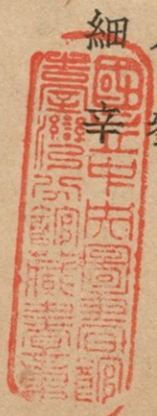 細辛
國立中央圖書館
臺灣分館藏書章